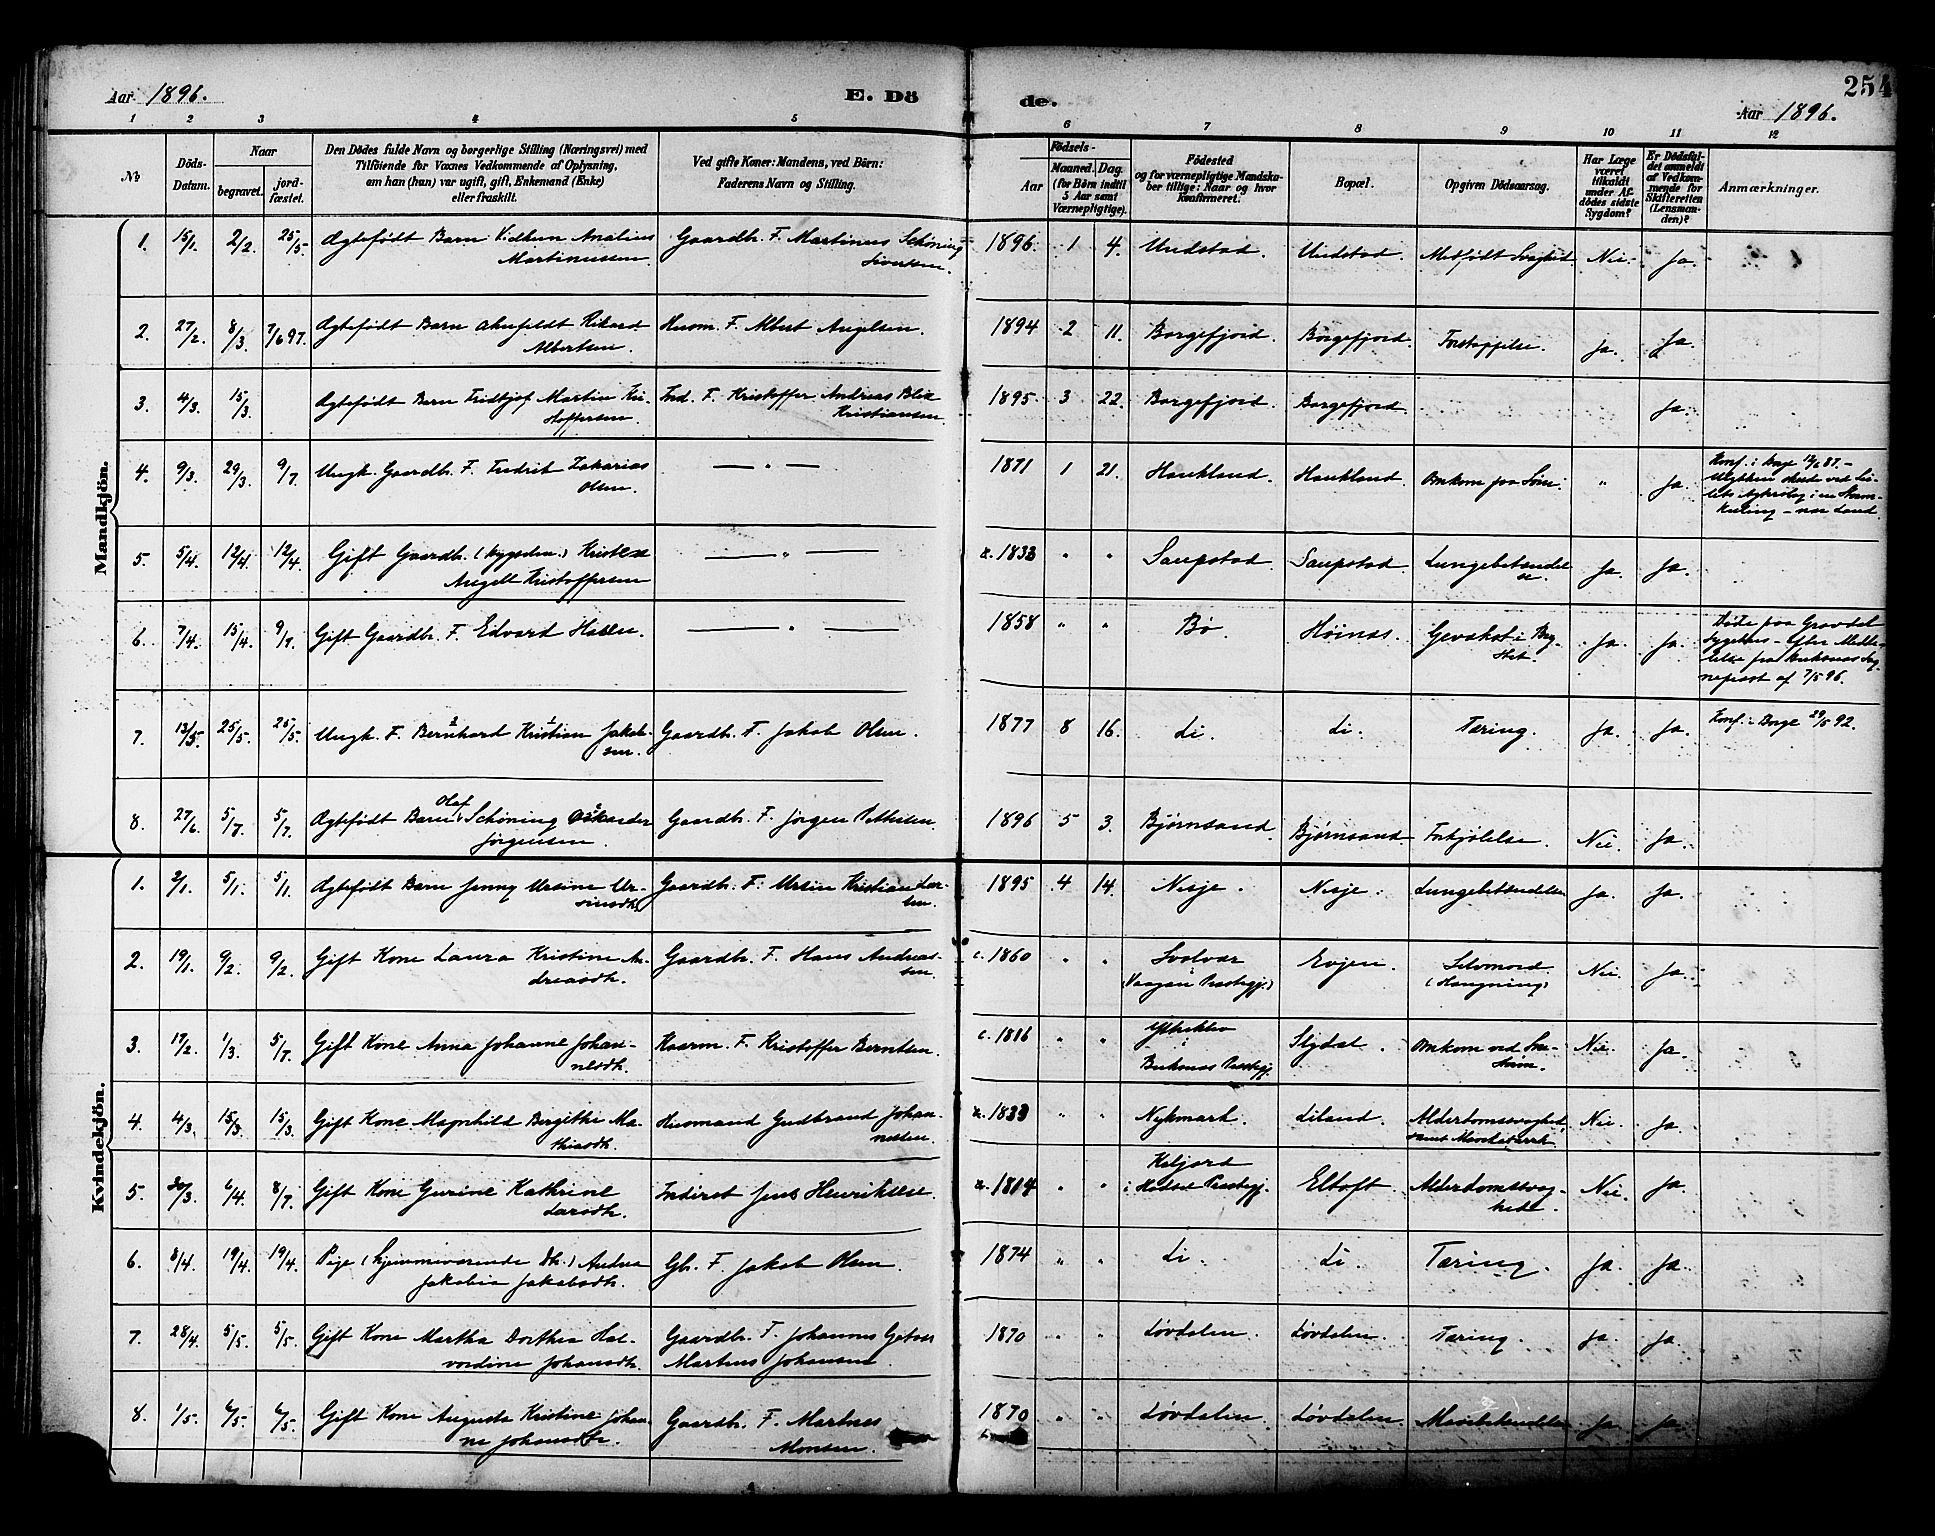 254
Aar 1896. E. Dö de. Aar 1896.
1 2 3 4 5 6 7 8 9 10 11 12
No
Döds-Datum.
Naar
begravet.
jord-fæstet.
Den Dödes fulde Navn og borgerlige Stilling (Næringsvei) med
Tilföiende for Voxnes Vedkommende af Oplysning,
om han (hun) var ugift, gift, Enkemand (Enke)
eller fraskilt.
Ved gifte Koner: Mandens, ved Börn:
Faderens Navn og Stilling.
Födsels-
Aar
Maaned. Dag.
(for Börn indtil
5 Aar samt
Værnepligtige).
Födested
og for værnepligtige Mandska-
ber tillige: Naar og hvor
konfirmeret.
Bopæl.
Opgiven Dödsaarsag.
Har Læge
været
tilkaldt
under Af-
dödes sidste
Sygdom?
Er Dödsfal-
det anmeldt
af Vedkom-
mende for
Skifteretten
(Lensman-
den)?
Anmærkninger.
Mandkjön.
1. 15/1. 2/2. 25/5. Ægtefødt Barn Vidkun Analius Martinussen Gaardbr. F. Martinus Schøning Sivertsen. 1896. 1 4. Undstad. Undstad. Medfødt Svaghed. Nei. Ja.
2. 27/2. 8/3. 7/6 97. Ægtefødt Barn Ahnfeldt Rikard Albertsen. Husm. F. Albert Angelsen. 1894 2 11. Borgefjord. Borgefjord. Forstoppelse. Ja. Ja.
3. 4/3. 15/3. Ægtefødt Barn Fridtjof Martin Kristoffersen. Ind. F. Kristoffer Andreas Blix Kristiansen. 1895 3 22. Borgefjord. Borgefjord. Ja.
4. 9/3. 29/3. 9/7. Ungk. Gaardbr. F. Fredrik Zakarias Olsen. — " — 1871 1 21. Haukland. Haukland. Omkom paa Søen. " Ja. Konf. i Borge
5. 5/4. 12/4. 12/4. Gift Gaardbr. Kristen Angell Kristoffersen — " — c. 1833 " " Saupstad. Saupstad. Lungebetændelse. Ja. Ja.
6. 7/4. 15/4. 9/7. Gift Gaardbr. F. Edvard Hallen. — " — 1858 " " Bø. Høinæs. Gevækst i Brystet. Ja. Ja. Døde paa Gravdal Sygehus - efter Meddelelse fra Buksnæs Sognepræst af 7/5 96.
7. 13/5. 25/5. 25/5. Ungk. F. Bernhard Kristian Jakobsen. Gaardbr. F. Jakob Olsen. 1877 8 16. Li. Li. Tæring. Ja. Ja. Konf. i Borge 29/5 92.
8. 27/6. 5/7. 5/7. Ægtefødt Barn Olaf Schøning Oskarder Jørgensen. Gaardbr. F. Jørgen Pettersen. 1896 5 3. Bjørnsand. Bjørnsand. Forkjølelse. Nei. Ja.
Kvindekjön.
1. 2/1. 5/1. 5/1. Ægtefødt Barn Jenny Ursine Ursinsdtr. Gaardbr. F. Ursin Kristian Larsen. 1895 4 14. Nesje. Nesje. Lungebetændelse Ja. Ja.
2. 19/1. 9/2. 9/2. Gift Kone Laura Kristine Andreasdtr. Gaardbr. F. Hans Andreassen. c. 1860 " " Svolvær (Vaagan Præstegj.) Evjen. Selvmord (Hængning) Nei Ja.
3. 17/2. 1/3. 5/7. Gift Kone Anna Johanne Johannesdtr. Kaarm. F. Kristoffer Berntsen. c. 1816 " " Buksnæs Præstegj. Slydal. Omkom ved Snestorm. Nei. Ja.
4. 4/3. 15/3. 15/3. Gift Kone Magnhild Bergithe Mathiasdtr. Husmand Gudbrand Johannesen. c. 1833 " " Nykmark. Liland. Alderdomssvaghed samt Mavekatarrh. Nei. Ja.
5. 30/3. 6/4. 8/7. Gift Kone Gurine Kathrine Larsdtr. Inderst Jens Henriksen. c. 1814 " " Kaljord i Hadsel Præstegj. Eltoft. Alderdomssvaghed. Nei. Ja.
6. 8/4. 19/4. 19/4. Pige (hjemmeværende Dtr.) Andrea Jakobia Jakobsdtr. Gbr. F. Jakob Olsen. 1874 " " Li. Li. Tæring. Ja. Ja.
7. 28/4. 5/5. 5/5. Gift Kone Martha Dorthea Halvordine Johansdtr. Gaardbr. F. Johannes Martens Johansen. 1870 " " Løvdalen. Løvdalen. Tæring. Ja. Ja.
8. 1/5. 6/5. 6/5. Gift Kone Augusta Kristine Johanne Johansdtr. Gaardbr. F. Martnes Monsen. 1870 " " Løvdalen. Løvdalen. Mavebetændelse Ja. Ja.